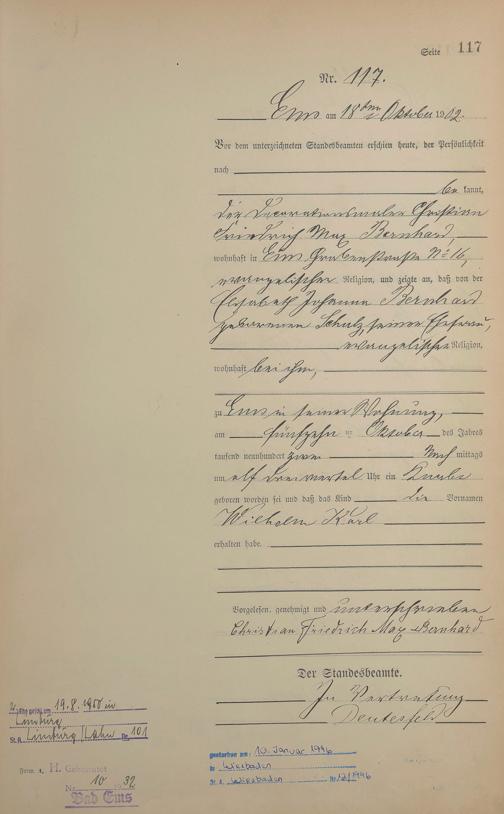 Seite 117
Nr. 117.
Ems am 18ten Oktober 1902.
Vor dem unterzeichneten Standesbeamten erschien heute, der Persönlichkeit
nach
bekannt,
der Decorationsmaler Christian
Friedrich Max Bernhard,
wohnhaft in Ems Grabenstraße No 16,
evangelischer Religion, und zeigte an, daß von der
Elisabeth Johanna Bernhard
geborenen Schulz, seiner Ehefrau,
evangelischer Religion,
wohnhaft bei ihm,
zu Ems in seiner Wohnung,
am fünfzehn ten Oktober des Jahres
tausend neunhundert zwei Nachmittags
um elf dreiviertel Uhr ein Knabe
geboren worden sei und daß das Kind die Vornamen
Wilhelm Karl
erhalten habe.
Vorgelesen, genehmigt und unterschrieben
Christian Friedrich Max Bernhard
Der Standesbeamte.
In Vertretung
19.8.1950 in
Limburg
St.A. Limburg/Lahn Nr. 101
Form. 1, H. Geburtsakt
Nr. 10 32
Bad Ems
gestorben am: 10. Januar 1996
in Wiesbaden
St.A. Wiesbaden Nr. /1996